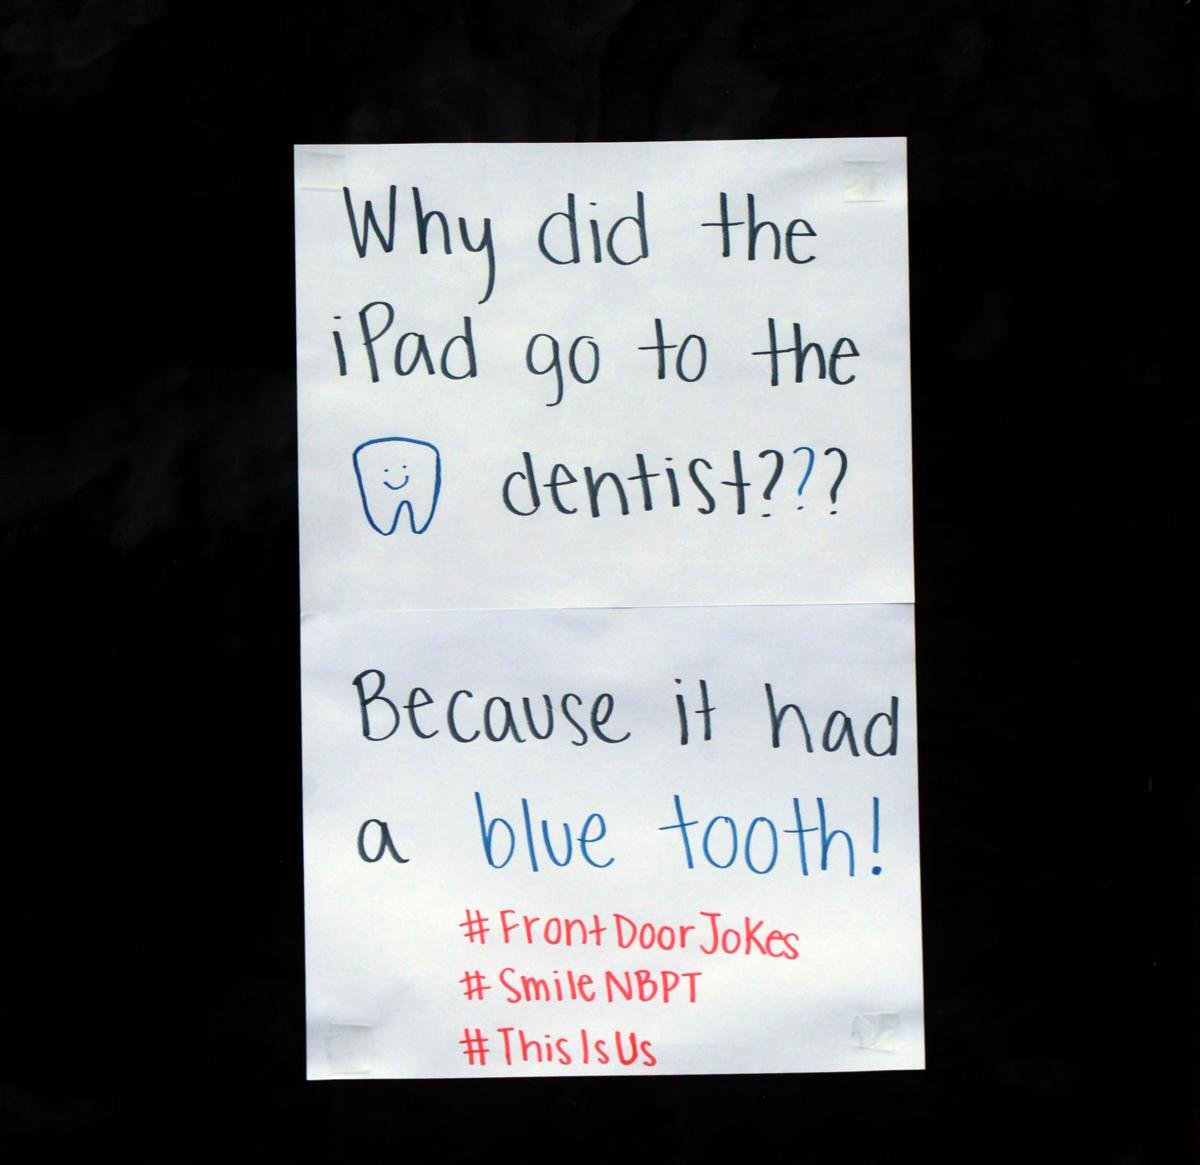 Why did the
iPad go to the
dentist???
Because it had
a blue tooth!
#FrontDoorJokes
#SmileNBPT
#ThisIsUs